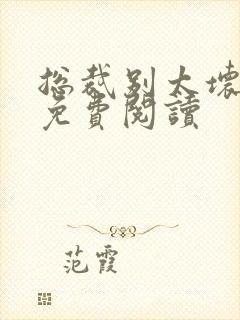 总裁别太壞
免費閱讀
范霞